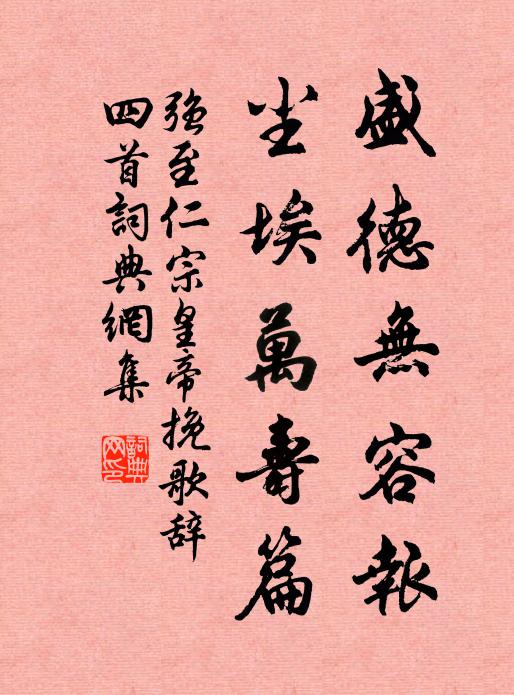 盛德無容報
尘埃萬壽篇
强至仁宗皇帝挽歌辞
四首詞典網集
詞典網印